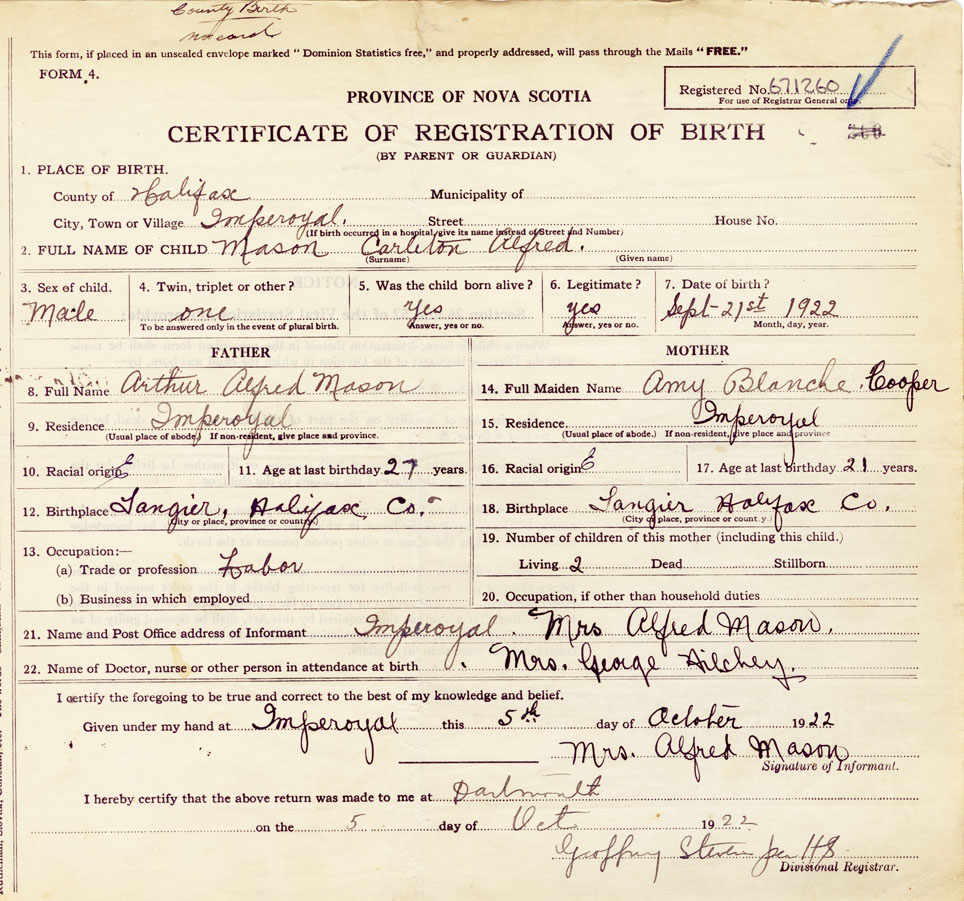 County Birth
This form, if placed in an unsealed envelope marked "Dominion Statistics free," and properly addressed, will pass through the Mails "FREE."
FORM 4.
Registered No. 671260
For use of Registrar General only
PROVINCE OF NOVA SCOTIA
CERTIFICATE OF REGISTRATION OF BIRTH
(BY PARENT OR GUARDIAN)
1. PLACE OF BIRTH.
County of Halifax Municipality of
City, Town or Village Imperoyal. Street House No.
(If birth occurred in a hospital, give its name instead of Street and Number)
2. FULL NAME OF CHILD Mason Carleton Alfred.
(Surname) (Given name)
3. Sex of child. 4. Twin, triplet or other? 5. Was the child born alive? 6. Legitimate? 7. Date of birth?
Male one Yes yes Sept-21st 1922
To be answered only in the event of plural birth. Answer, yes or no. Answer, yes or no. Month, day, year.
FATHER
8. Full Name Arthur Alfred Mason
9. Residence Imperoyal
(Usual place of abode.) If non-resident, give place and province.
10. Racial origin E 11. Age at last birthday 27 years.
12. Birthplace Tangier, Halifax Co.
(City or place, province or country.)
13. Occupation:—
(a) Trade or profession Labor
(b) Business in which employed
MOTHER
14. Full Maiden Name Amy Blanche Cooper
15. Residence Imperoyal
(Usual place of abode.) If non-resident, give place and province
16. Racial origin E 17. Age at last birthday 21 years.
18. Birthplace Tangier Halifax Co.
(City or place, province or count.y.)
19. Number of children of this mother (including this child.)
Living 2 Dead Stillborn
20. Occupation, if other than household duties
21. Name and Post Office address of Informant Imperoyal. Mrs Alfred Mason.
22. Name of Doctor, nurse or other person in attendance at birth Mrs. George Hilchey.
I certify the foregoing to be true and correct to the best of my knowledge and belief.
Given under my hand at Imperoyal this 5th day of October 1922
Mrs. Alfred Mason
Signature of Informant.
I hereby certify that the above return was made to me at Dartmouth
on the 5 day of Oct 1922
Geoffrey Steven
Divisional Registrar.